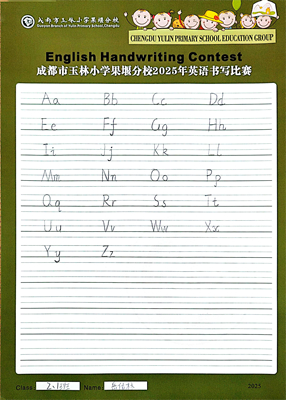 成都市玉林小学果堰分校
Guoyan Branch of Yulin Primary School, Chengdu
CHENGDU YULIN PRIMARY SCHOOL EDUCATION GROUP
English Handwriting Contest
成都市玉林小学果堰分校2025年英语书写比赛
Aa Bb Cc Dd
Ee Ff Gg Hh
Ii Jj Kk Ll
Mm Nn Oo Pp
Qq Rr Ss Tt
Uu Vv Ww Xx
Yy Zz
Class: Name:
2025